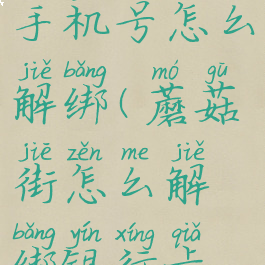 手机号怎么
jiě bǎng mó gū
解绑(蘑菇
jiē zěn me jiě
街怎么解
bǎng yín xíng qiǎ
绑银行卡